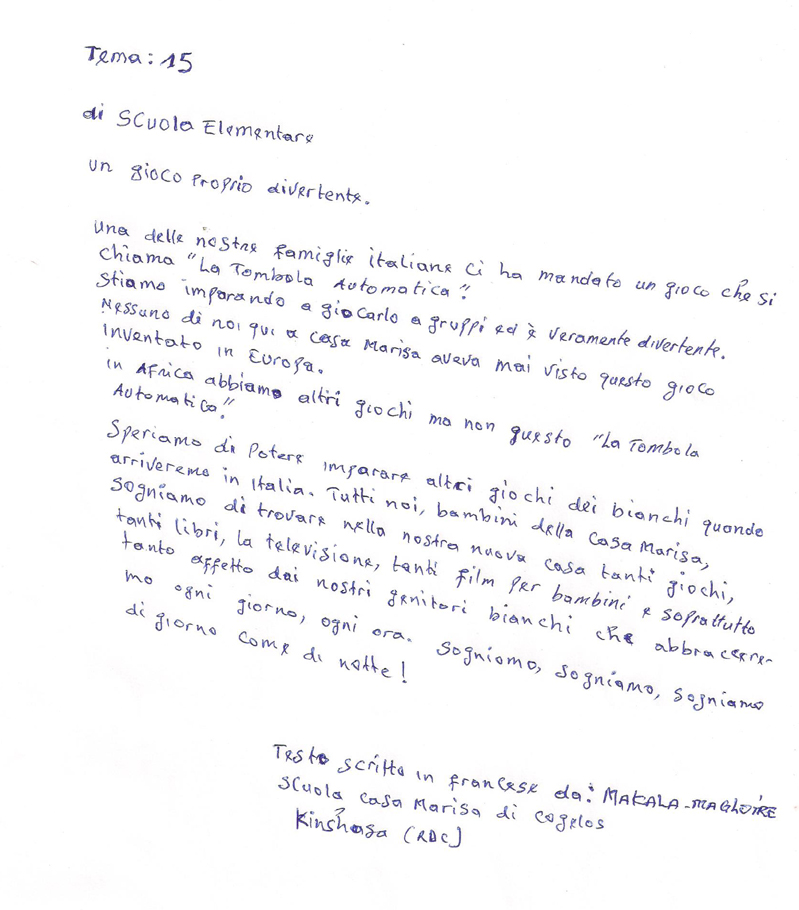 Tema: 15
di SCuola Elementare
un gioco proprio divertente.
Una delle nostre famiglie italiane ci ha mandato un gioco che si
chiama "La Tombola Automatica".
Stiamo imparando a giocarlo a gruppi ed è veramente divertente.
Nessuno di noi qui a casa Marisa aveva mai visto questo gioco
inventato in Europa.
in Africa abbiamo altri giochi ma non questo "La Tombola
Automatica".
Speriamo di potere imparare altri giochi dei bianchi quando
arriveremo in Italia. Tutti noi, bambini della Casa Marisa,
sogniamo di trovare nella nostra nuova casa tanti giochi,
tanti libri, la televisione, tanti film per bambini e soprattutto
tanto affetto dai nostri genitori bianchi che abbraccere-
mo ogni giorno, ogni ora. Sogniamo, sogniamo, sogniamo
di giorno come di notte!
Testo scritto in francese da: MAKALA-MAGLOIRE
Scuola casa Marisa di cogelos
Kinshasa (RDC)